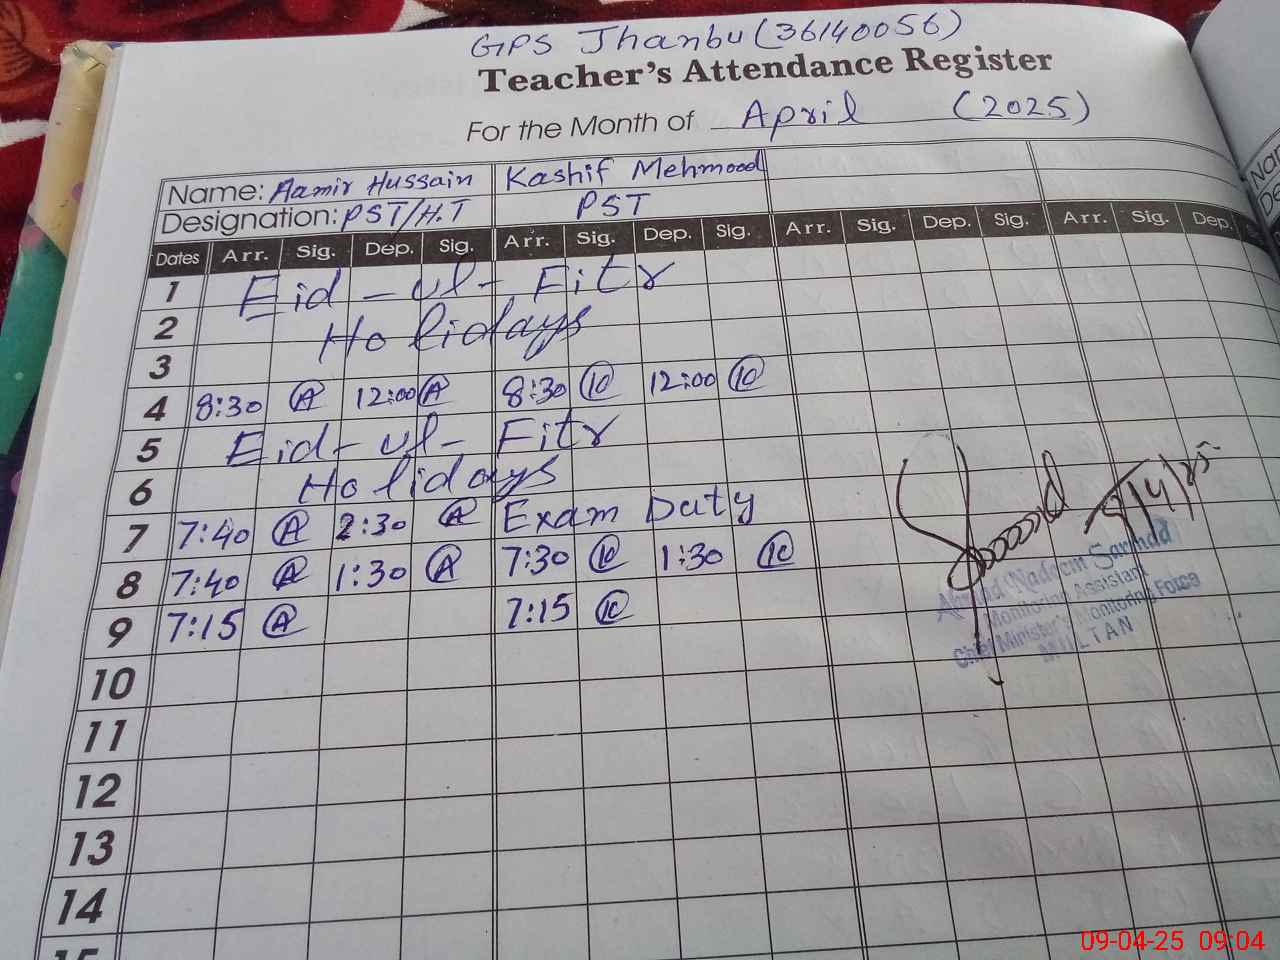 GPS Jhanbu (36140056)
Teacher's Attendance Register
For the Month of April (2025)
Name: Aamir Hussain Kashif Mehmood
Designation: PST/H.T PST
Dates Arr. Sig. Dep. Sig. Arr. Sig. Dep. Sig. Arr. Sig. Dep. Sig. Arr. Sig. Dep.
1 Eid-ul-Fitr
2 Holidays
3
4 8:30 A 12:00 A 8:30 K 12:00 K
5 Eid-ul-Fitr
6 Holidays
7 7:40 A 2:30 A Exam Duty
8 7:40 A 1:30 A 7:30 K 1:30 K
9 7:15 A 7:15 K
10
11
12
13
14
15
9/4/25
Nadeem Sarmad
Monitoring Assistant
Chief Minister's Monitoring Force
MULTAN
09-04-25 09:04